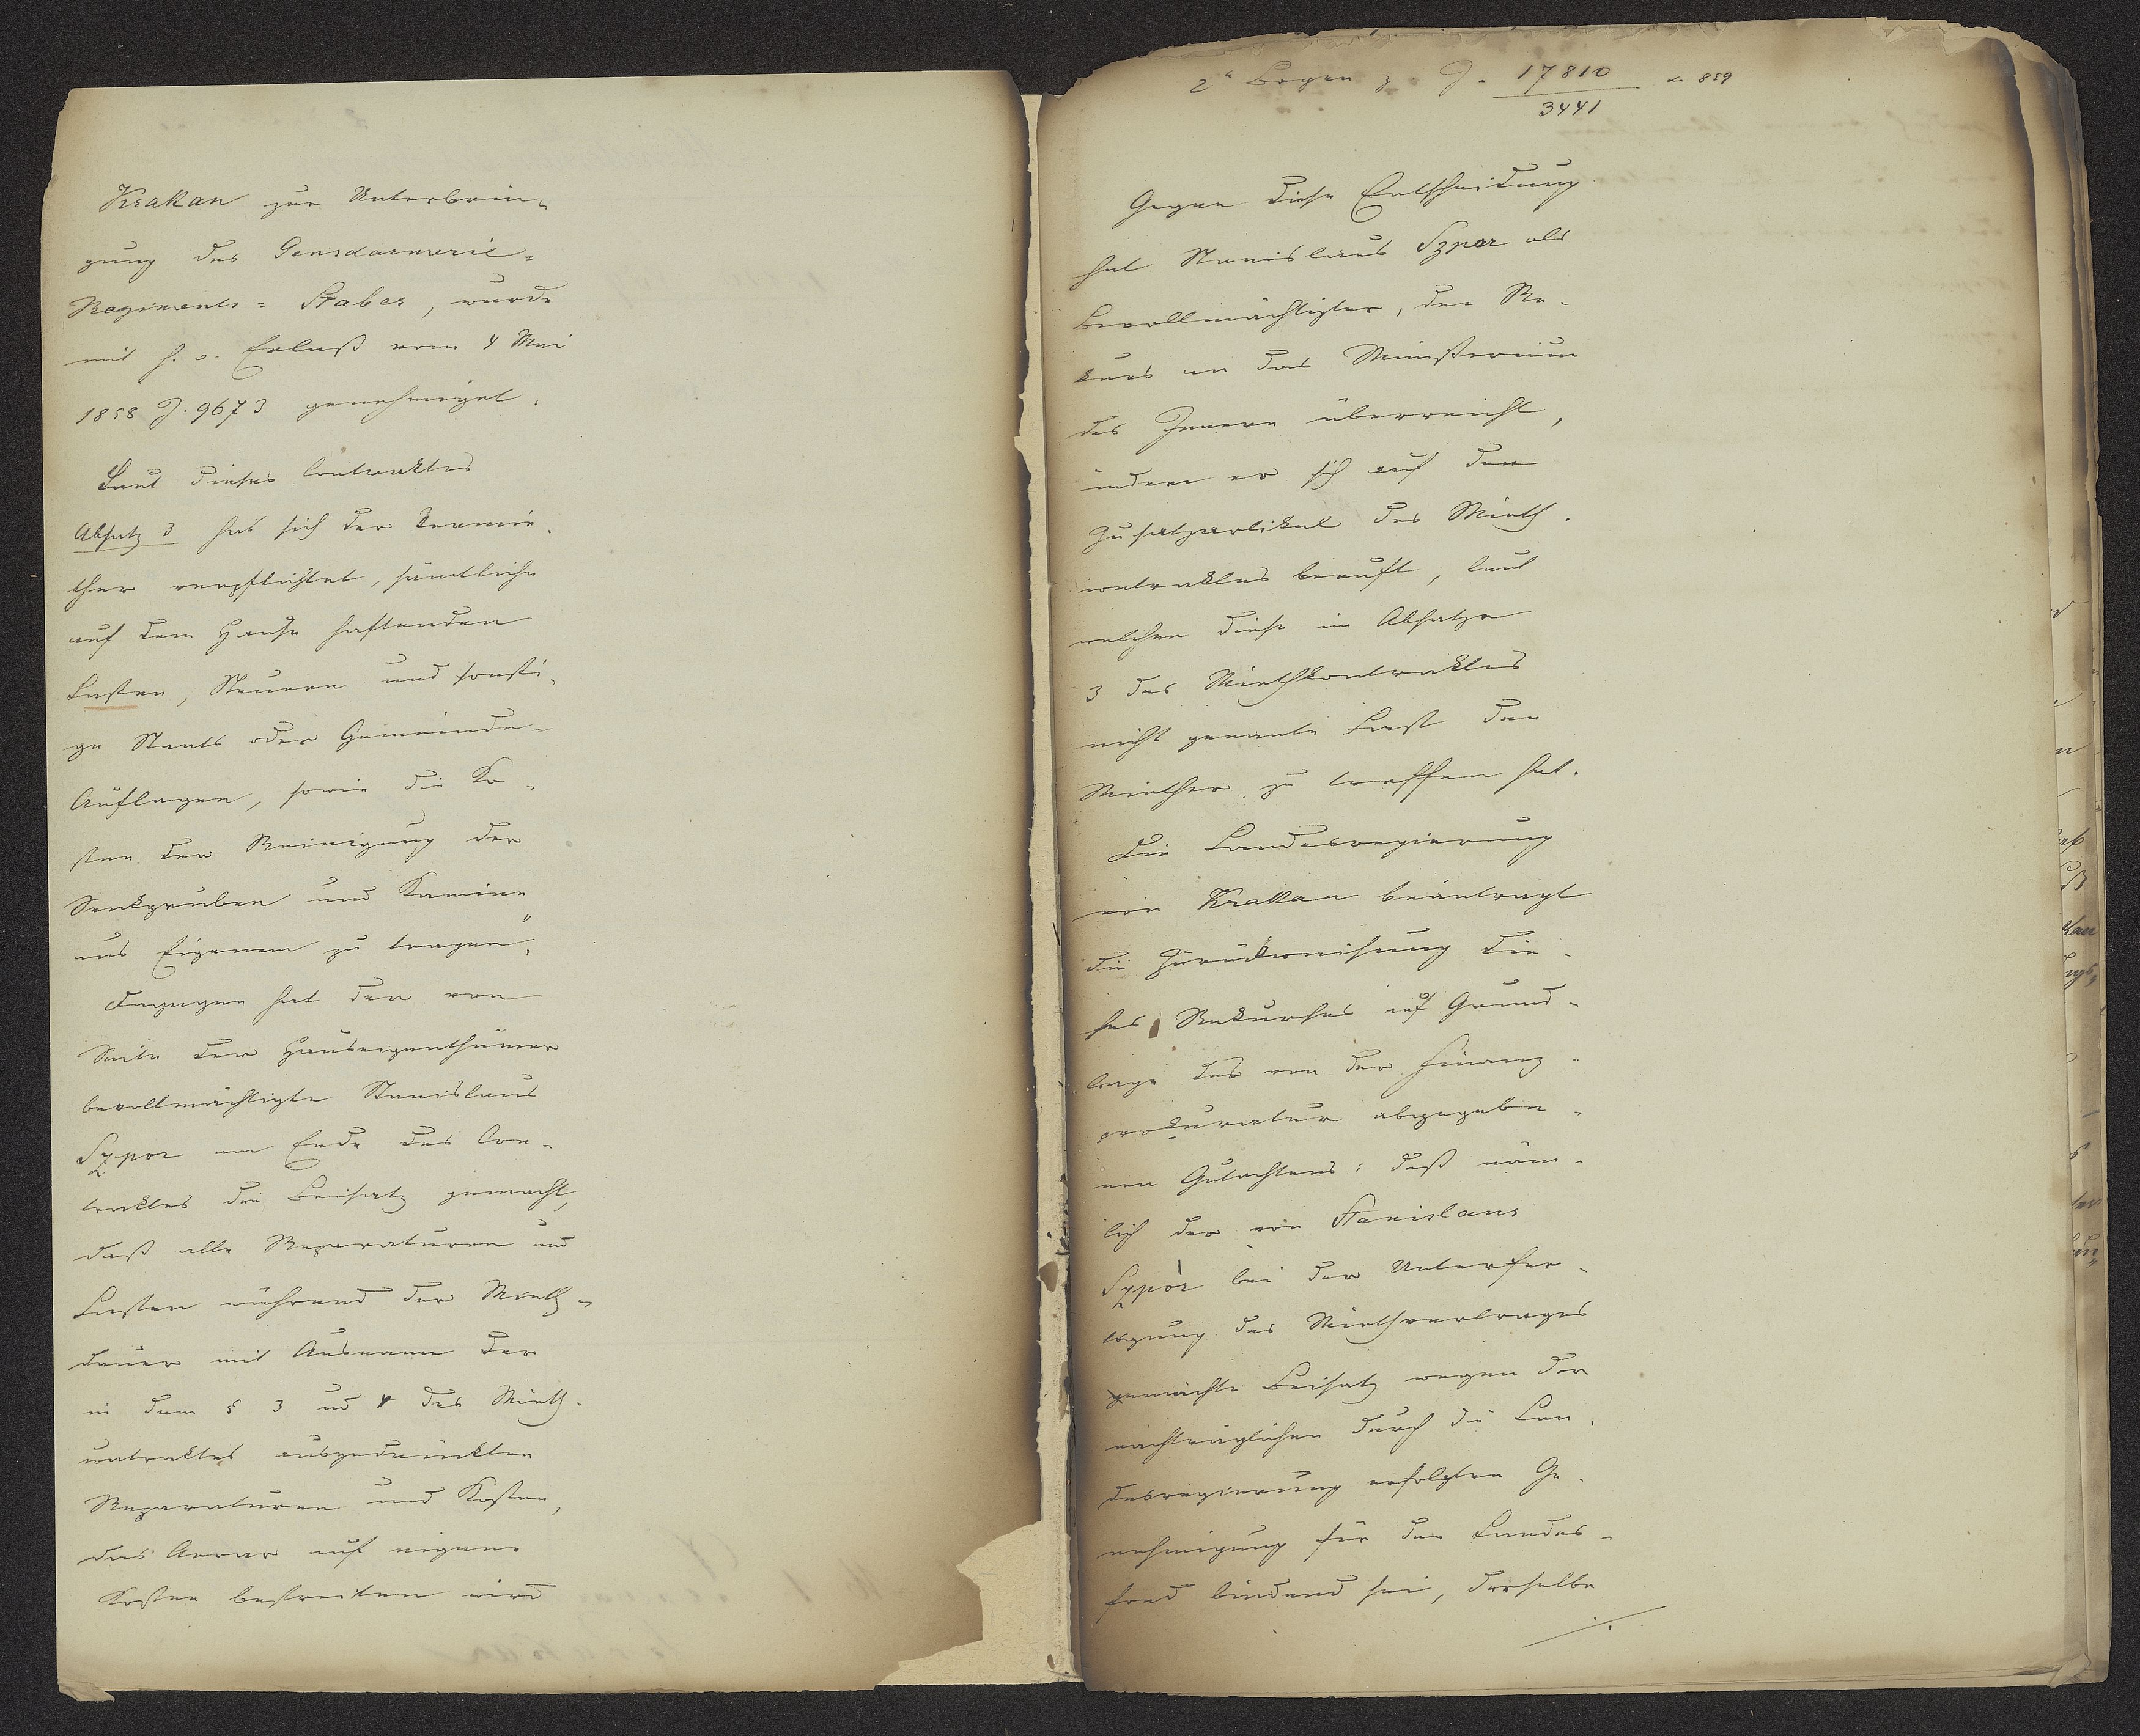 Krakau zur Unterbrin-
gung des Gensdarmerie-
Regiments-Stabes, wurde
mit h. o. Erlaß vom 4 Mai
1858 Z. 9673 genehmiget.
Laut dieses Contraktes
Absatz 3 hat sich der Vermie-
ther verpflichtet, sämtliche
auf dem Hause haftenden
Lasten, Steuern und sonsti-
ge Staats oder Gemeinde-
Auflagen, sowie die Ko-
sten der Reinigung der
Senkgruben und Kamine
aus Eigenem zu tragen".
Dagegen hat der von
Seite der Hauseigenthümer
bevollmächtigte Stanislaus
Szpor am Ende des Con-
traktes die Beisatz gemacht,
daß alle Reparaturen und
Lasten während der Mieth-
dauer mit Ausname der
in dem § 3 und 4 des Mieth-
contraktes ausgedrückten
Reparaturen und Kosten,
das Aerar auf eigene
Kosten bestreiten wird
2r Bogen z. Z. 17810/3441 de 859
Gegen diese Entscheidung
hat Stanislaus Szpor als
Bevollmächtigter, den Re-
kurs an das Ministerium
des Innern überreicht,
indem er sich auf den
Zusatzartikel des Mieth-
contraktes beruft, laut
welchen diese im Absatze
3 des Miethkontraktes
nicht genante Last den
Miether zu treffen hat.
Die Landesregierung
von Krakau beantragt
die Zurückweisung die-
ses Rekurses auf Grund-
lage des von der Finanz-
prokuratur abgegebe-
nen Gutachtens: daß näm-
lich der von Stanislaus
Szpor bei der Unterfer-
tigung des Miethvertrages
gemachte Beisatz wegen der
nachträglichen durch die Lan-
desregierung erfolgten Ge-
nehmigung für den Landes-
fond bindend sei, derselbe
./.